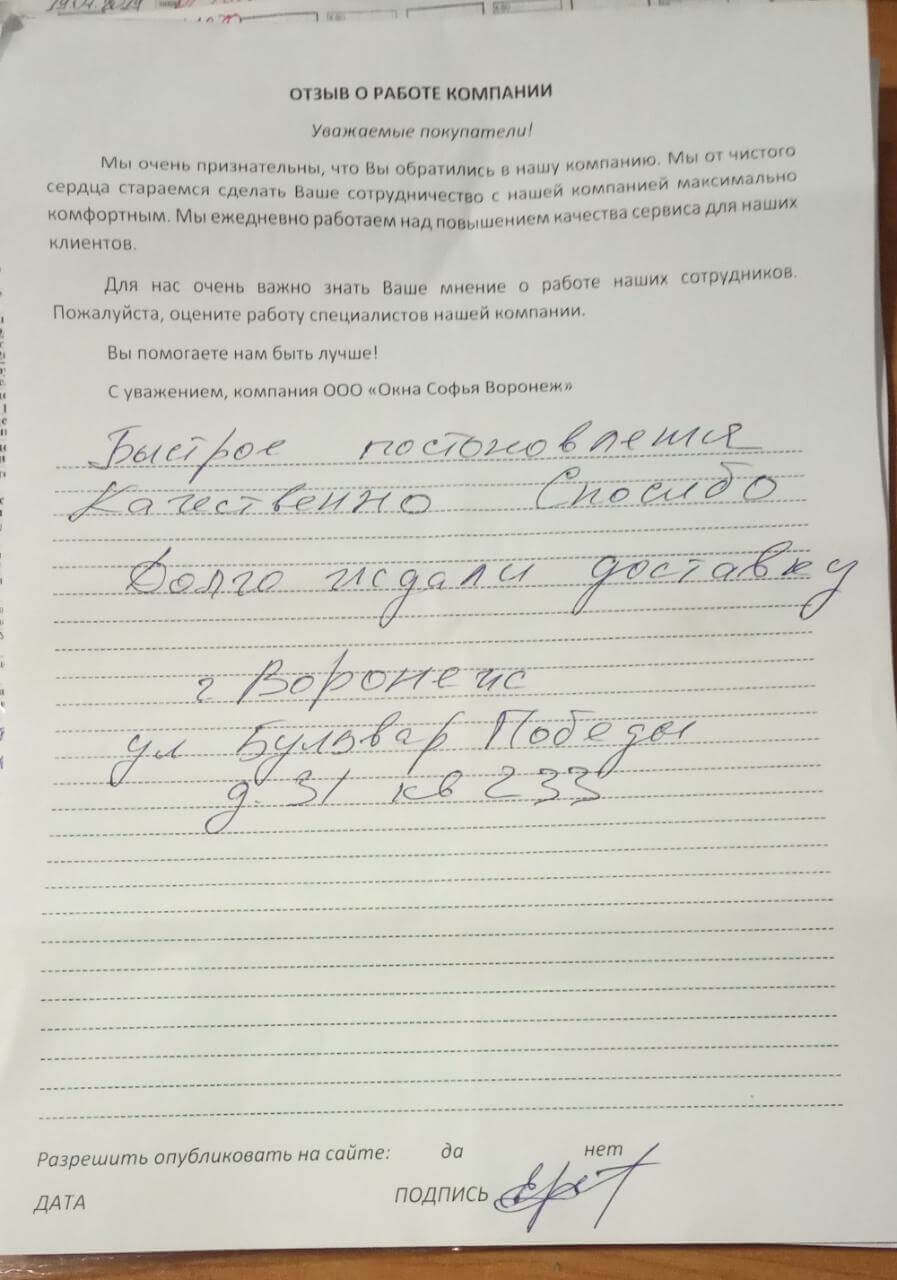 19.04.2019
ОТЗЫВ О РАБОТЕ КОМПАНИИ
Уважаемые покупатели!
Мы очень признательны, что Вы обратились в нашу компанию. Мы от чистого
сердца стараемся сделать Ваше сотрудничество с нашей компанией максимально
комфортным. Мы ежедневно работаем над повышением качества сервиса для наших
клиентов.
Для нас очень важно знать Ваше мнение о работе наших сотрудников.
Пожалуйста, оцените работу специалистов нашей компании.
Вы помогаете нам быть лучше!
С уважением, компания ООО «Окна Софья Воронеж»
Быстрое постоновления
Качественно Спосибо
Долго ждали доставку
г Воронеж
ул Бульвар Победы
д. 31 кв 233
Разрешить опубликовать на сайте: да нет
ДАТА ПОДПИСЬ